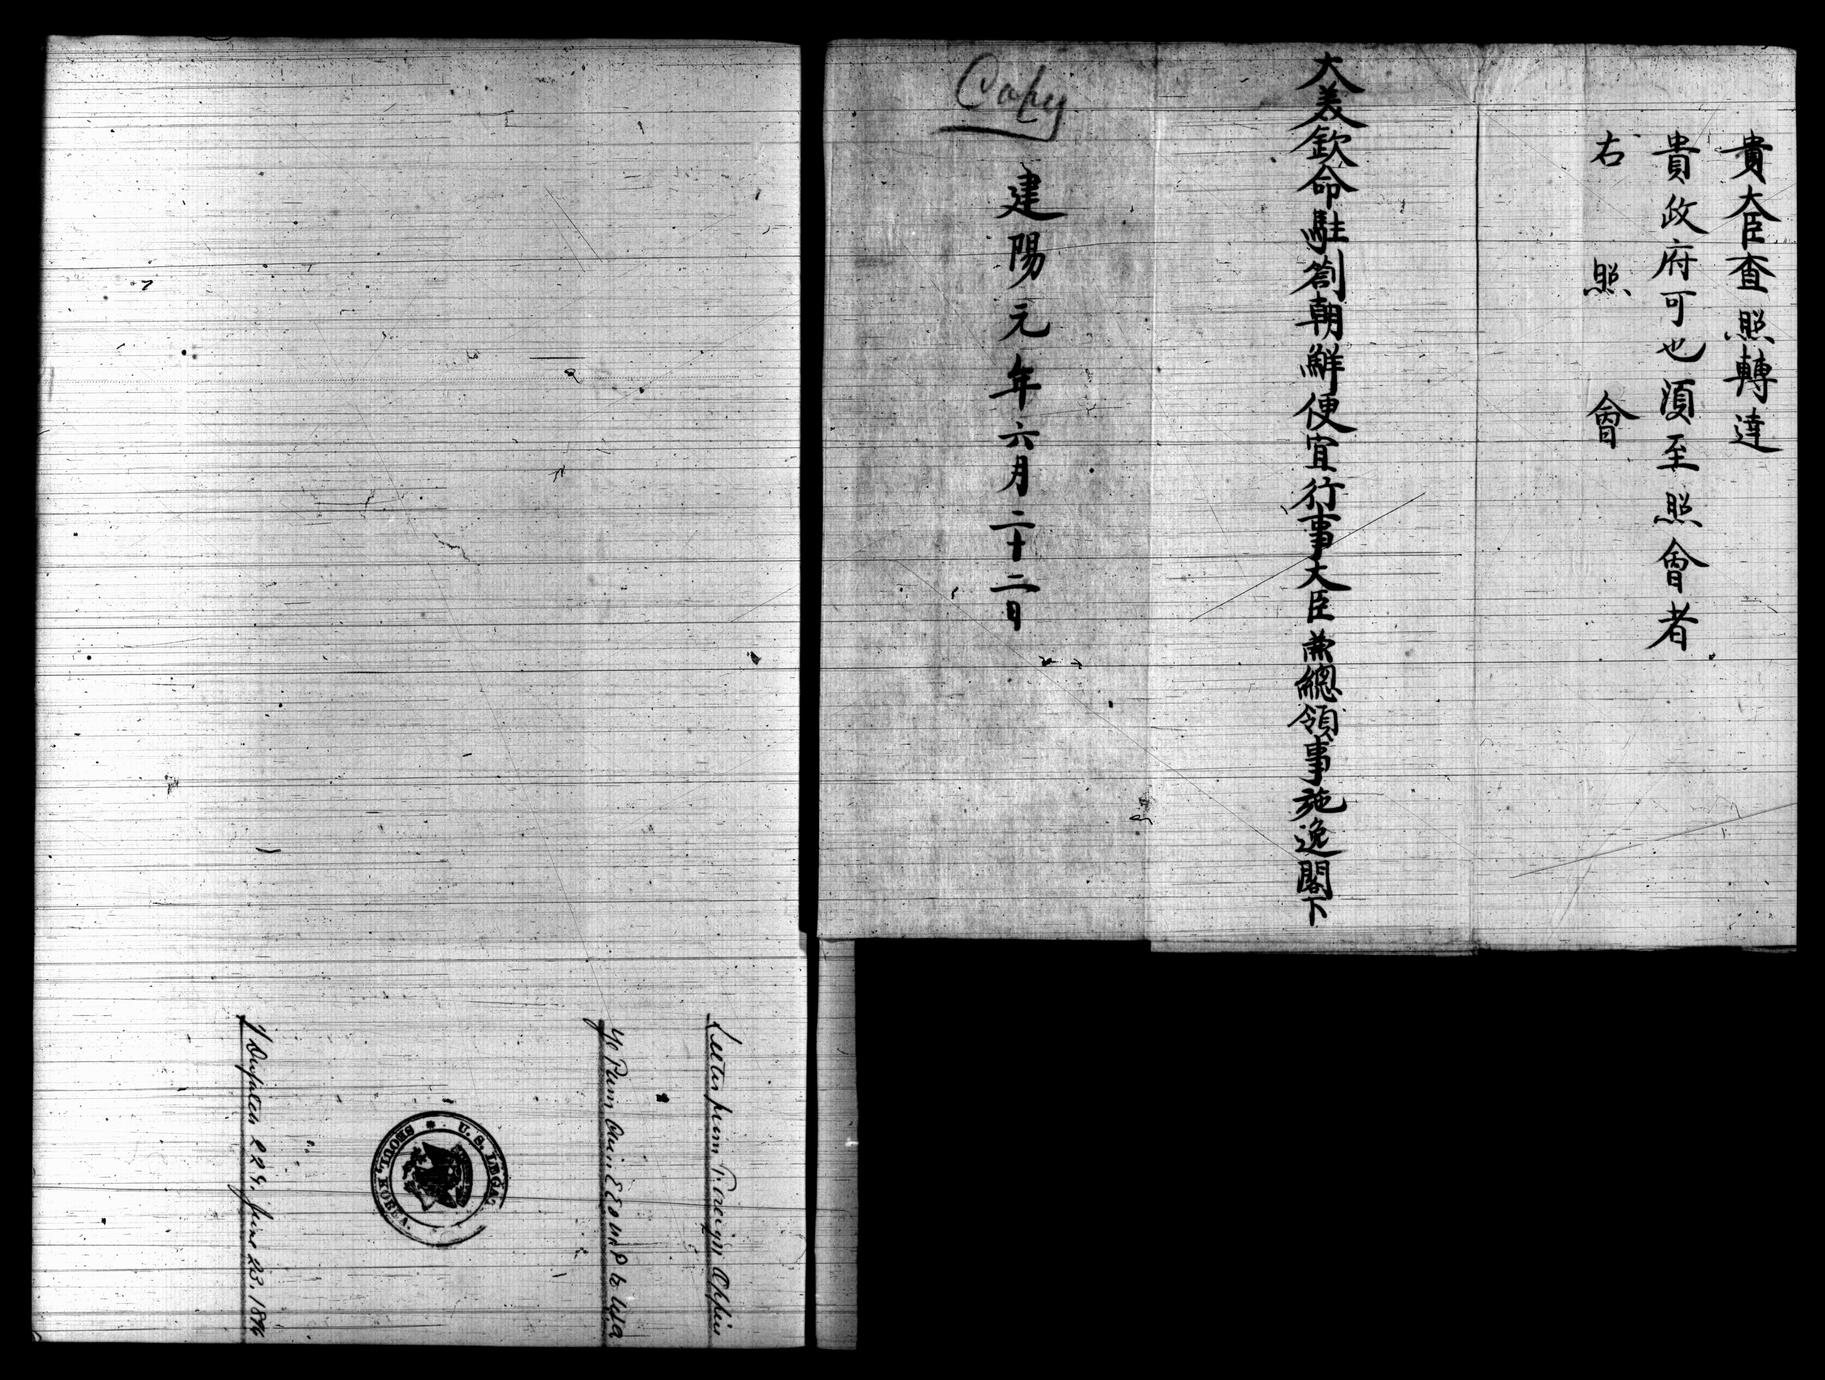 貴大臣查照轉達
貴政府可也須至照會者
右照會
大美欽命駐劄朝鮮便宜行事大臣兼總領事施逸閣下
建陽元年六月二十二日
Copy
Letter from Foreign Office
Ye Pum Chin E E and M P to USA
Dispatch 229, June 23, 1896
U. S. LEGA
SEOUL, KOREA.